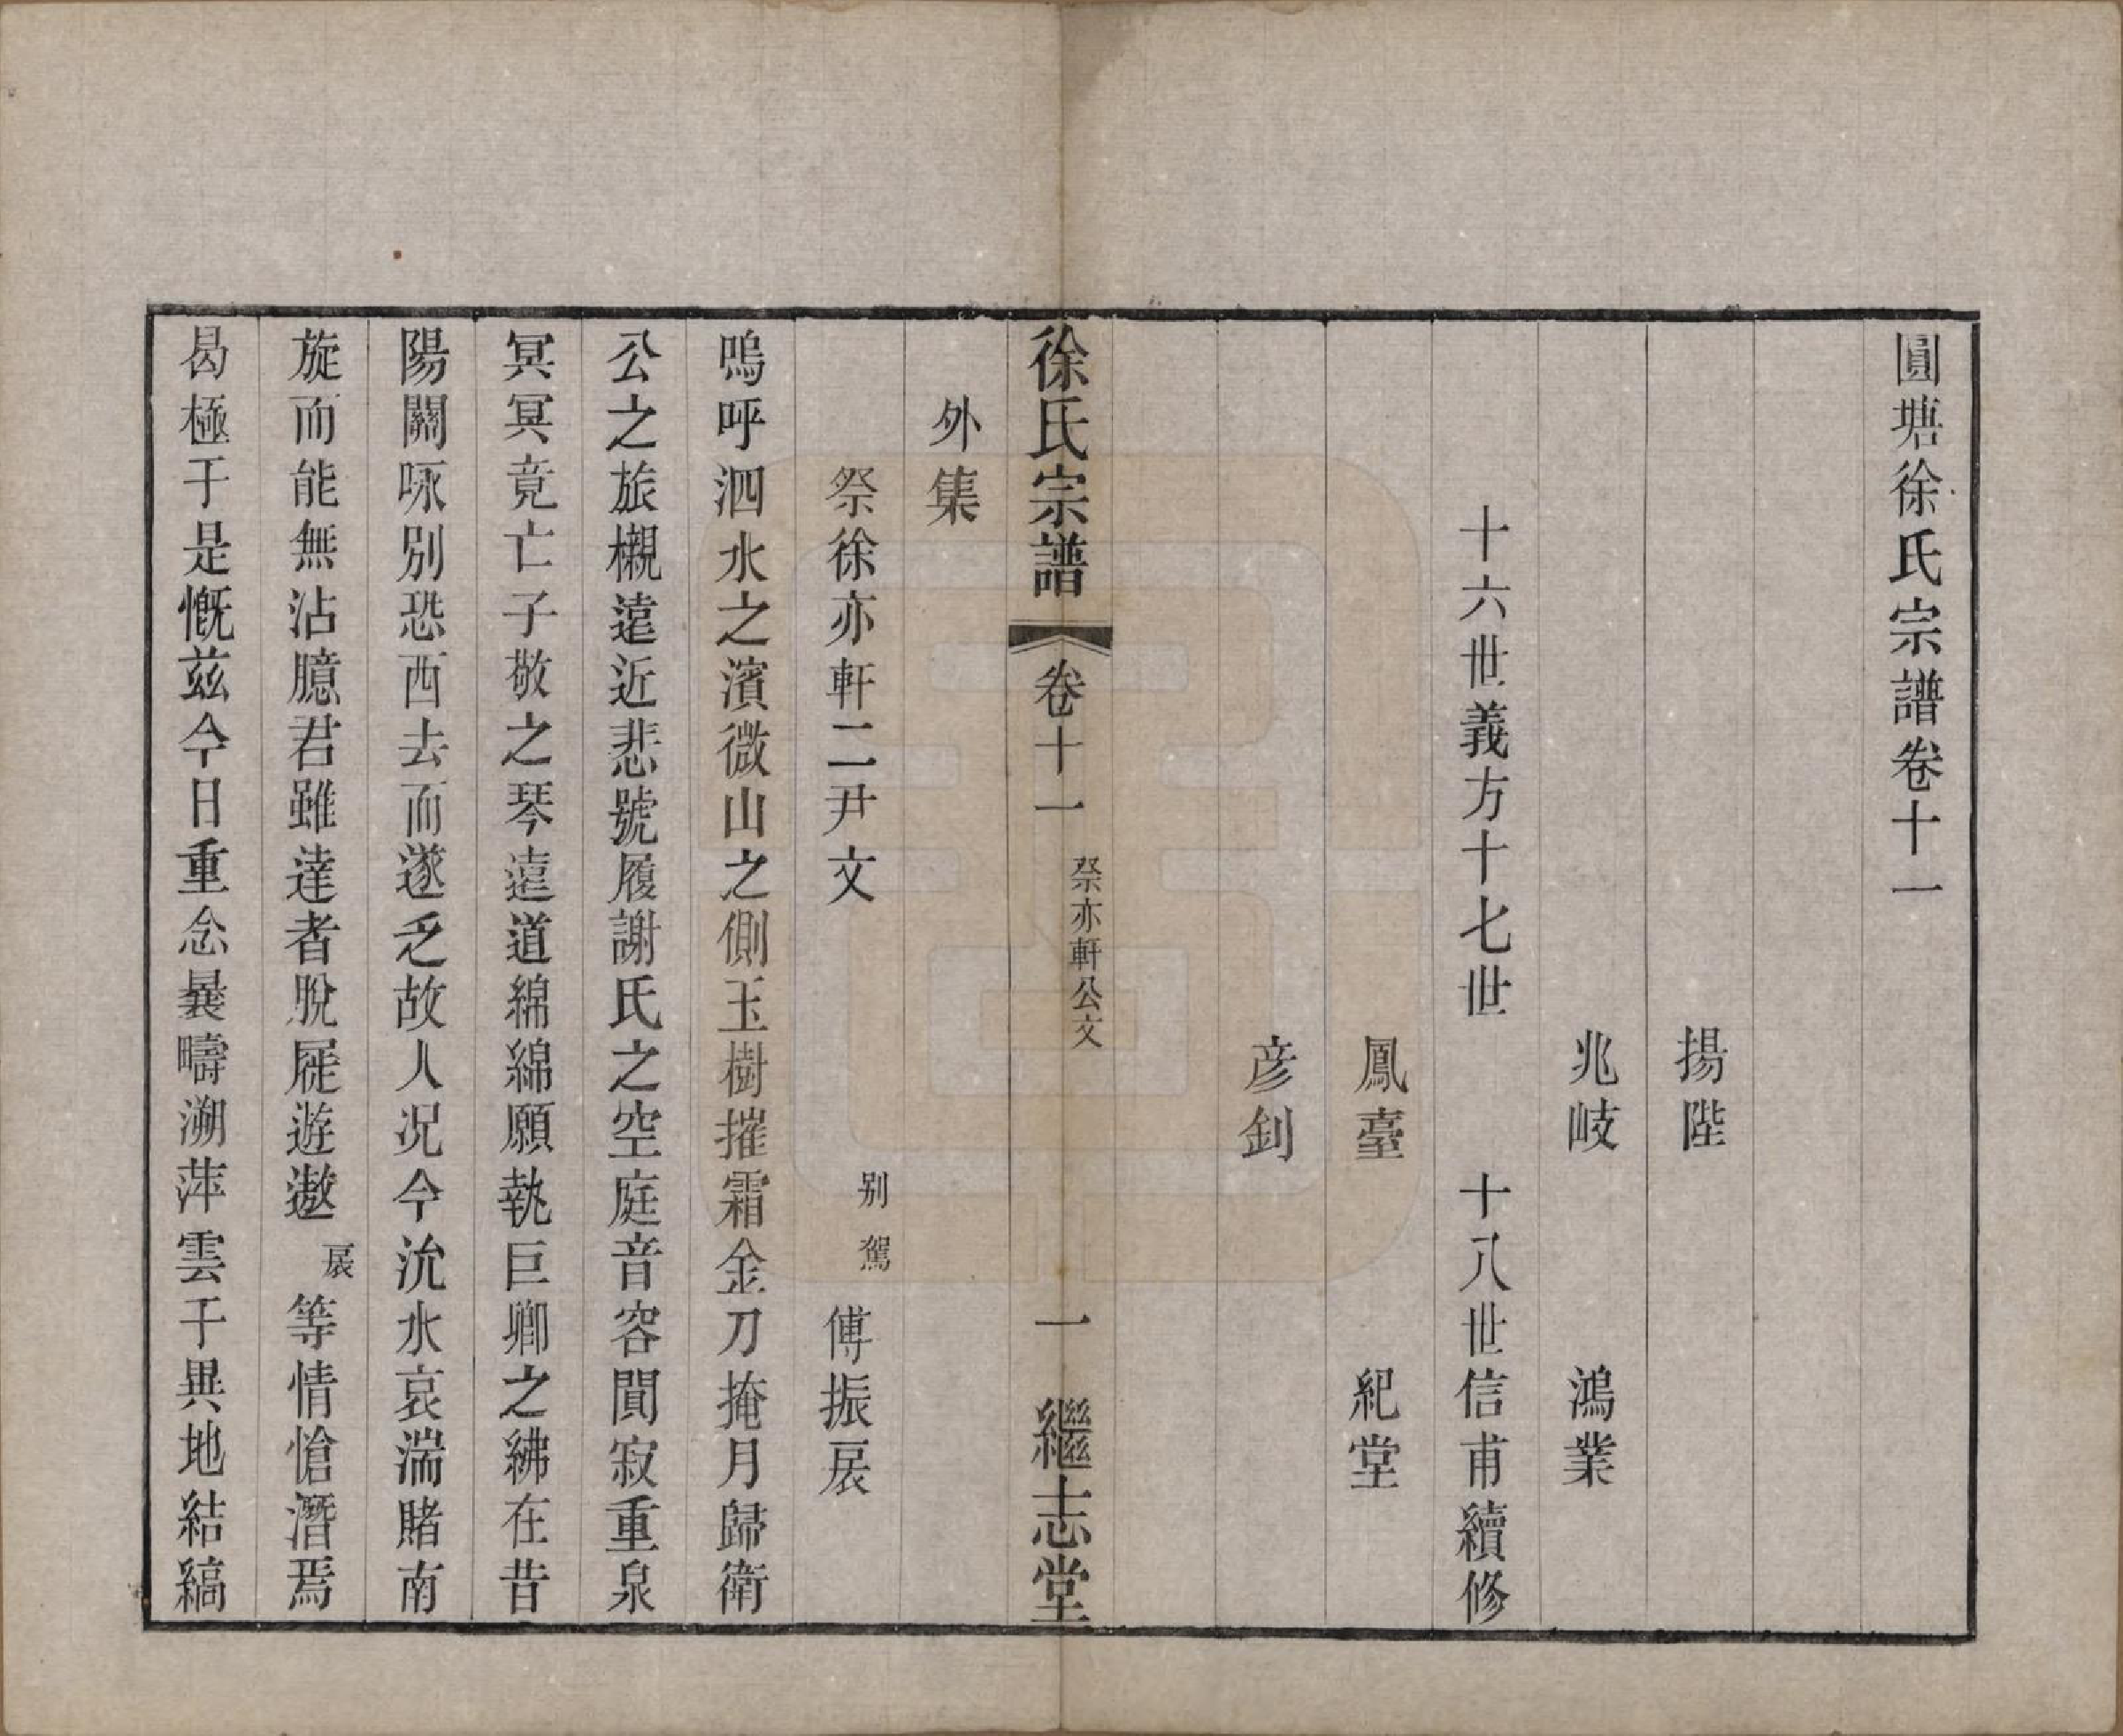 圓塘徐氏宗譜卷十一
揚陛
兆岐　鴻業
十六世義方十七世　十八世信甫續修
鳳臺　紀堂
彦釗
徐氏宗譜　卷十一　祭亦軒公文　一　繼志堂
外集
祭徐亦軒二尹文　别駕　傅振扆
嗚呼泗水之濱微山之側玉樹摧霜金刀掩月歸衛
公之旅櫬遠近悲號履謝氏之空庭音容閴寂重泉
冥冥竟亡子敬之琴遠道綿綿願執巨卿之紼在昔
陽關咏别恐西去而遂乏故人况今沇水哀湍賭南
旋而能無沾臆君雖達者脫屣遊遨扆等情愴潛焉
曷極于是慨茲今日重念曩疇溯萍雲于異地結縞